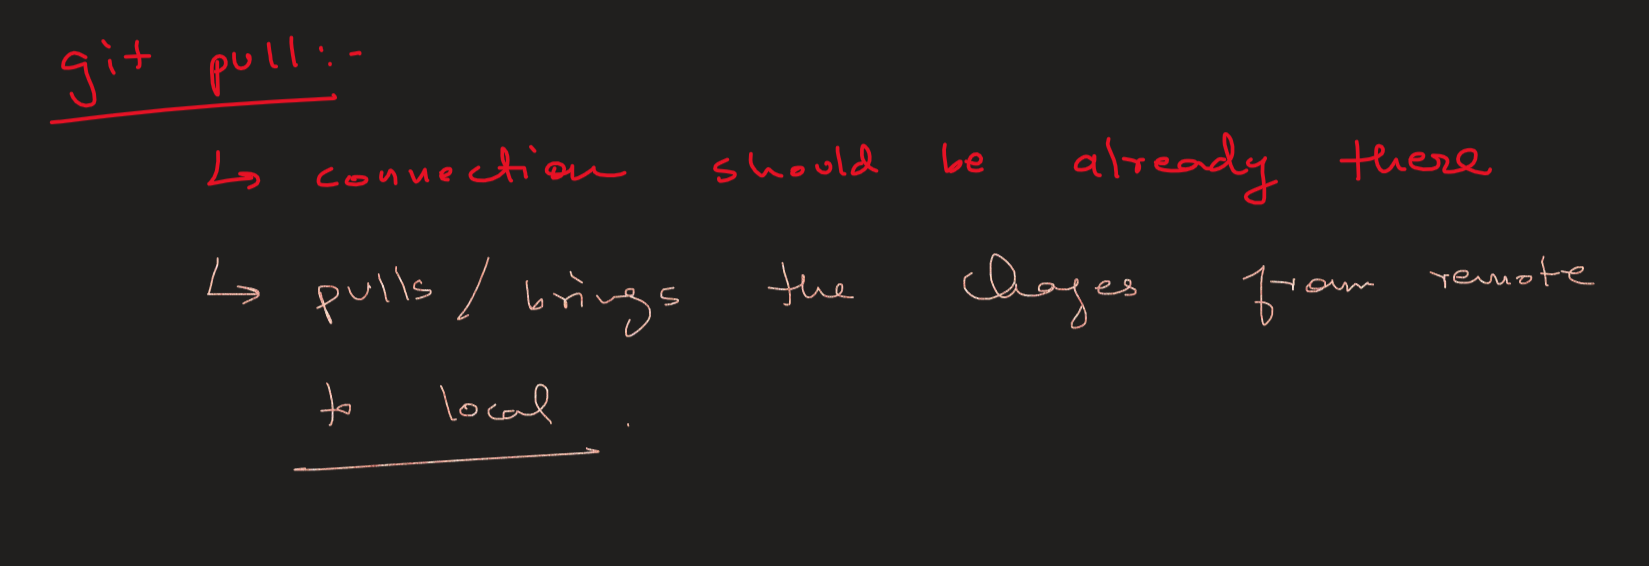 git pull:-
↳ connection should be already there
↳ pulls / brings the chages from remote
to local.